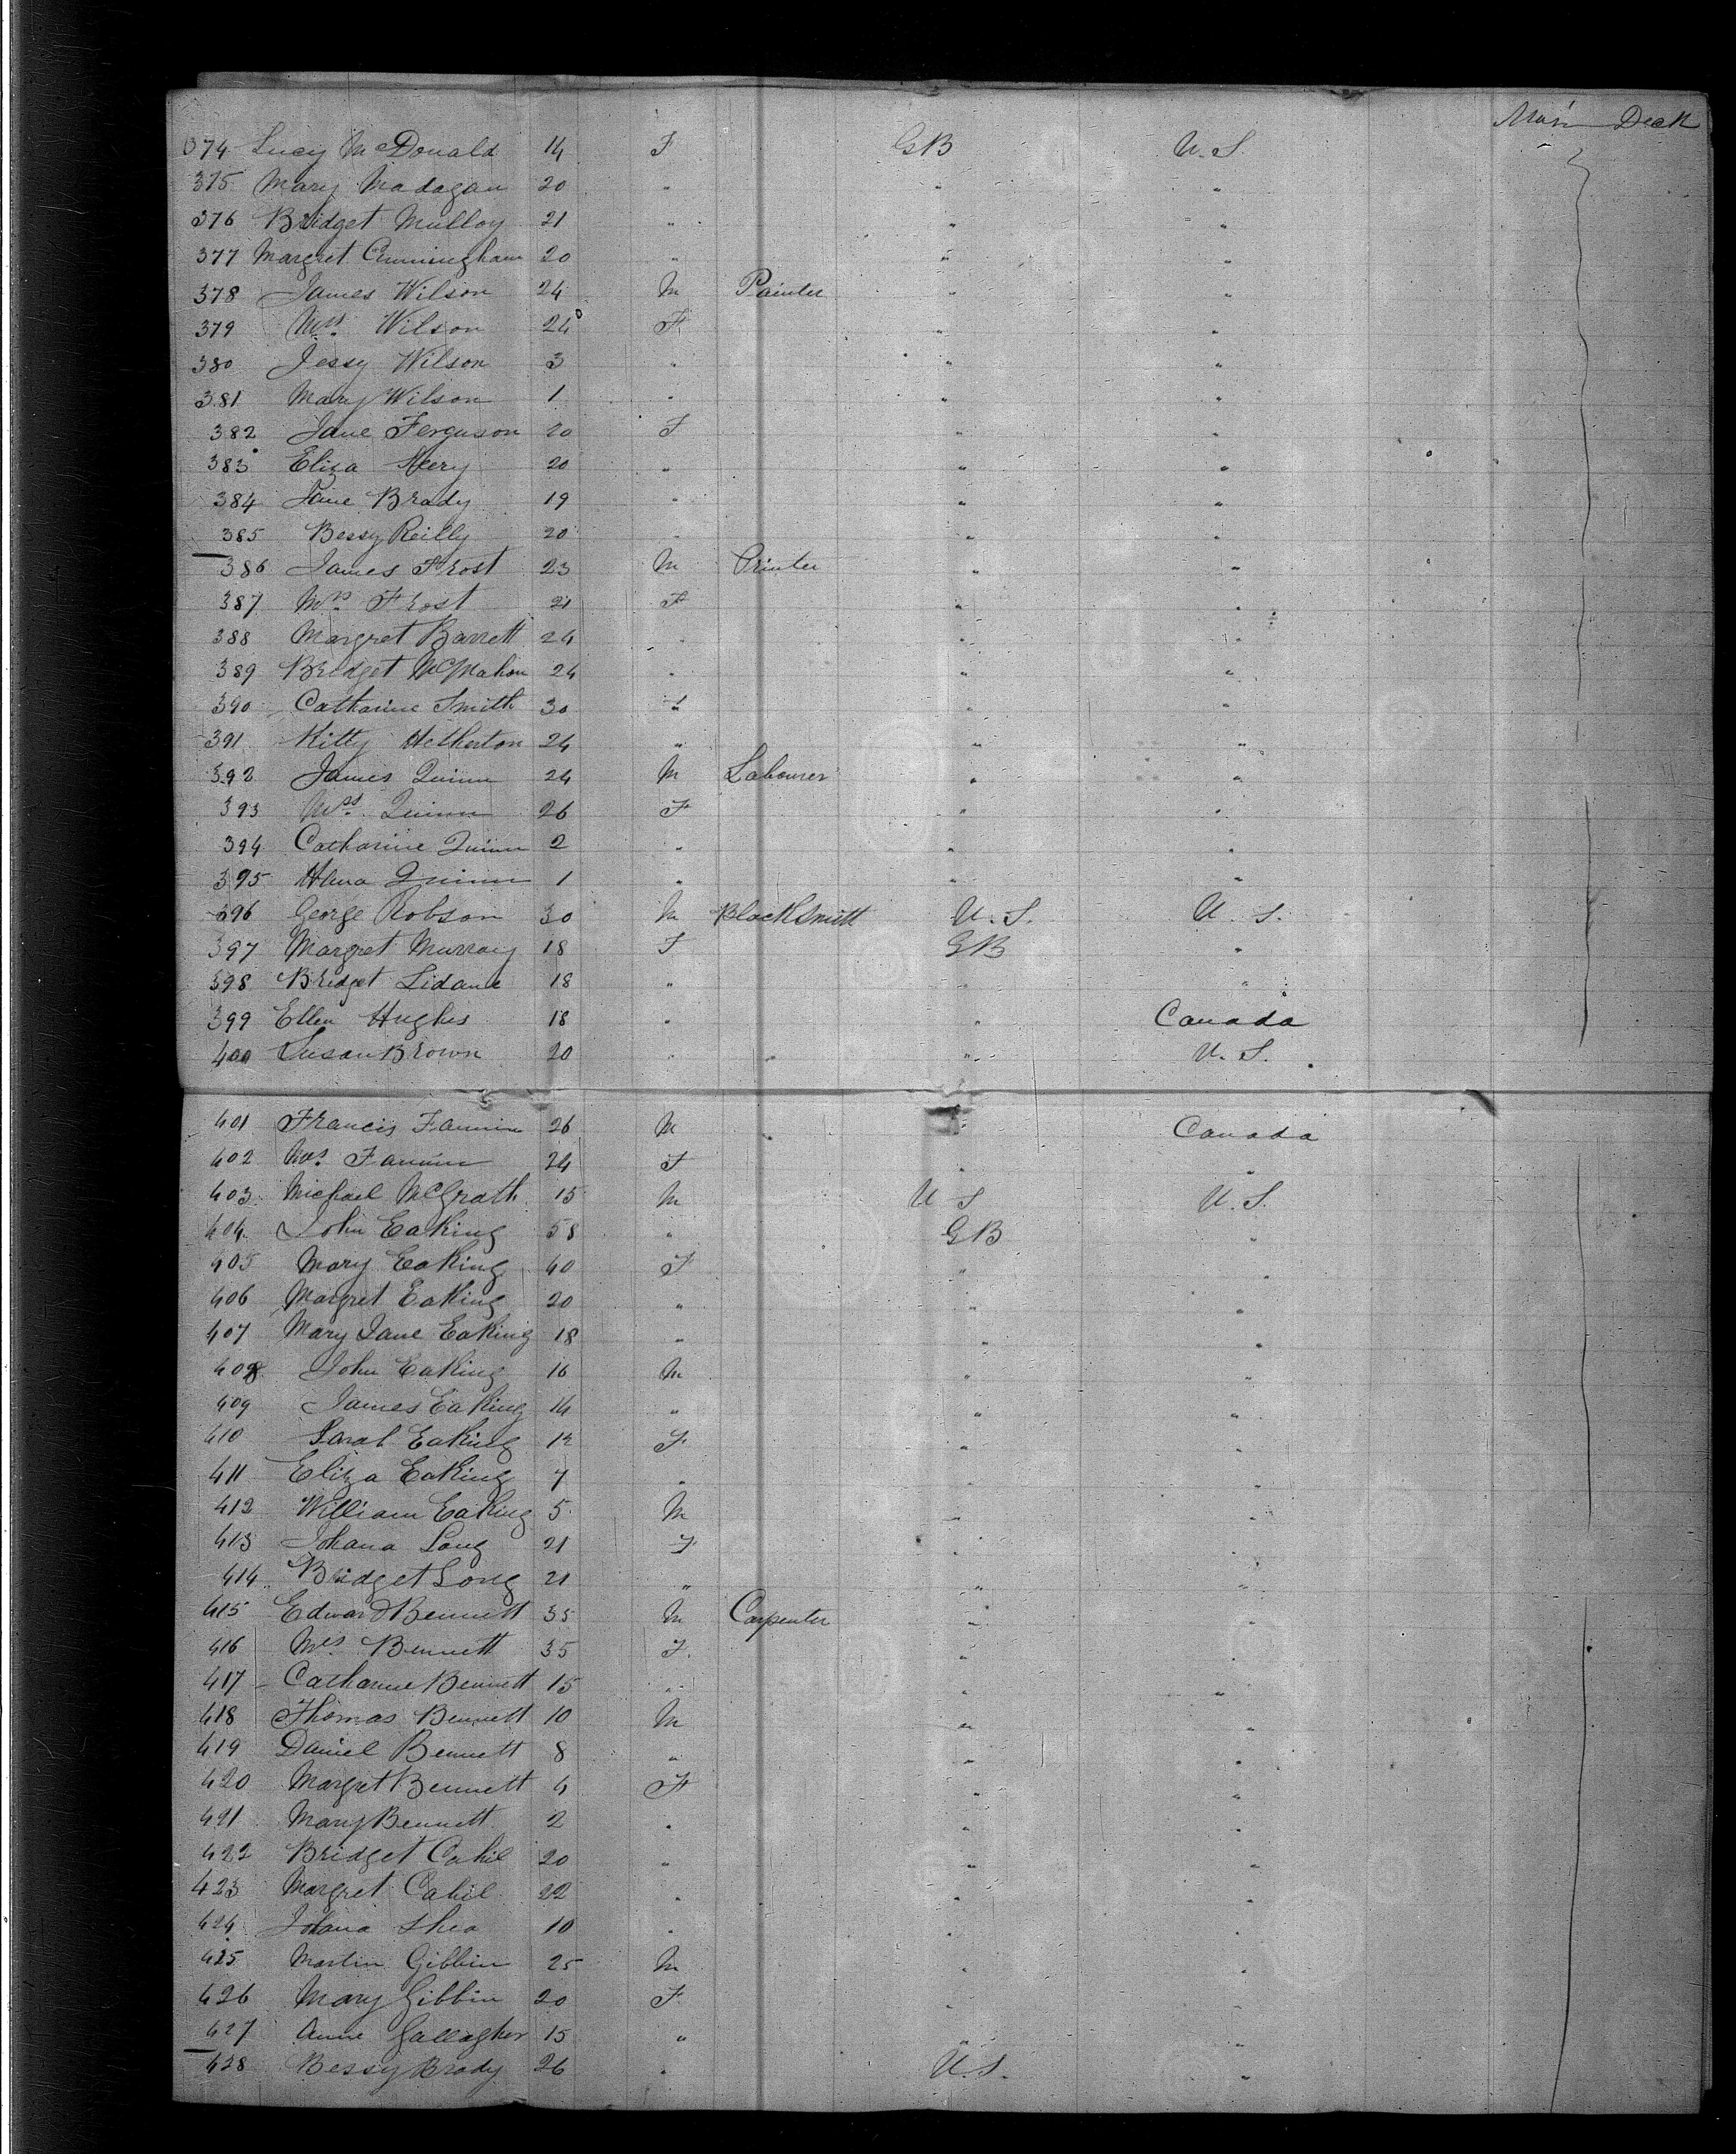 Main Deck
374 Lucy McDonald 14 F GB U.S.
375 Mary Madagan 20 " " "
376 Bridget Mulloy 21 " " "
377 Margret Cunningham 20 " " "
378 James Wilson 24 M Painter " "
379 Mrs. Wilson 24 F " "
380 Jessy Wilson 3 " " "
381 Mary Wilson 1 " " "
382 Jane Ferguson 20 F " "
383 Eliza 20 " " "
384 Jane Brady 19 " " "
385 Bessy Reilly 20 " " "
386 James Frost 23 M Printer " "
387 Mrs. Frost 21 F " "
388 Margret Barrett 24 " " "
389 Bridget McMahon 24 " " "
390 Catharine Smith 30 " " "
391 Kitty Hetherton 24 " " "
392 James Quinn 24 M Labourer " "
393 Mrs. Quinn 26 F " "
394 Catharine Quinn 2 " " "
395 Quinn 1 " " "
396 George Robson 30 M Blacksmith U.S. U.S.
397 Margret Murray 18 F GB "
398 Bridget Lidane 18 " " "
399 Ellen Hughes 18 " " Canada
400 Susan Brown 20 " " " U.S.
401 Francis Fannin 26 M " " Canada
402 Mrs. Fannin 24 F " "
403 Michael McGrath 15 M U S U.S.
404 John Eaking 58 " GB "
405 Mary Eaking 40 F " "
406 Margret Eaking 20 " " "
407 Mary Jane Eaking 18 " " "
408 John Eaking 16 M " "
409 James Eaking 14 " " "
410 Sarah Eaking 12 F " "
411 Eliza Eaking 7 " " "
412 William Eaking 5 M " "
413 Johana Long 21 F " "
414 Bridget Long 21 " " "
415 Edward Bennett 35 M Carpenter " "
416 Mrs. Bennett 35 F. " "
417 Catharine Bennett 15 " " "
418 Thomas Bennett 10 M " "
419 Daniel Bennett 8 " " "
420 Margret Bennett 4 F " "
421 Mary Bennett 2 " " "
422 Bridget Cahil 20 " " "
423 Margret Cahil 22 " " "
424 Johana Shea 10 " " "
425 Martin Gibbin 25 M " "
426 Mary Gibbin 20 F " "
427 Anne Gallagher 15 " " "
428 Bessy Brady 26 " U.S. "